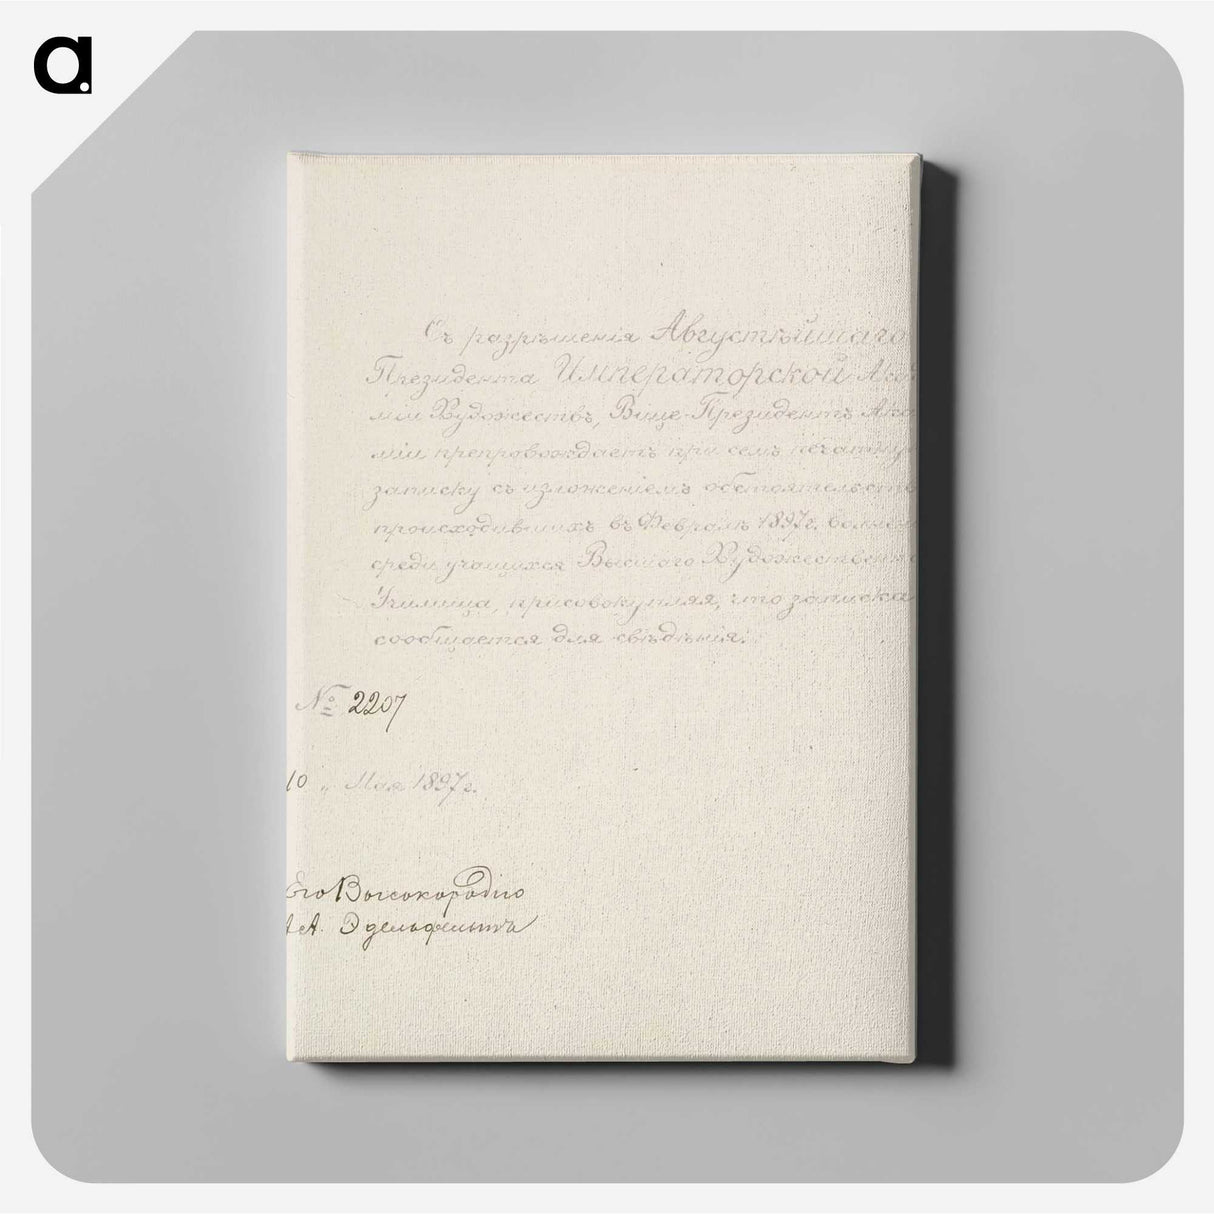 a.
Съ разрѣшенія Августѣйшаго
Президента Императорской Ака
міи Художествъ, Віце-Президентъ Ака
міи препровождаетъ при семъ печатну
записку съ изложеніемъ обстоятельств
происходившихъ въ Февралѣ 1897 г. волнен
среди учащихся Высшаго Художественна
Училища, присовокупляя, что записка
сообщается для свѣдѣнія.
№ 2207
10 „ Мая 1897 г.
Его Высокородію
А. Эдельфельтъ